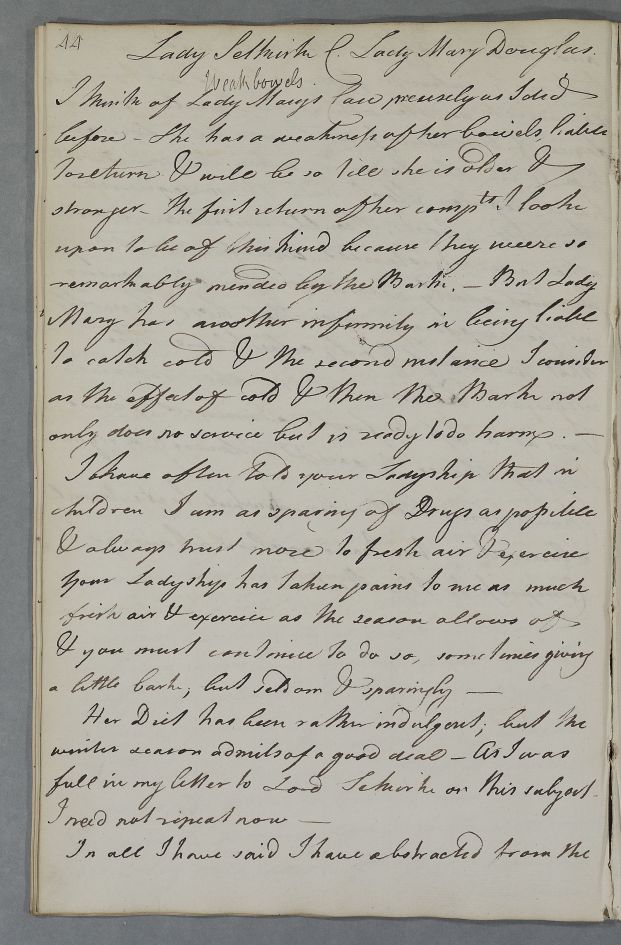 44
Lady Selkirk C. Lady Mary Douglas.
Weak bowels.
I think of Lady Marys Case precisely as I did
before - She has a weakness of her bowels liable
to return & will be so till she is older &
stronger - The first return of her compts I looke
upon to be of this kind because they weere so
remarkably mended by the Bark. - But Lady
Mary has another infirmity in being liable
to catch cold & the second instance I consider
as the effect of cold & then the Bark not
only does no service but is ready to do harm. -
I have often told your Ladyship that in
children I am as sparing of Drugs as possible
& always trust more to fresh air & exercise
Your Ladyship has taken pains to me as much
fresh air & exercice as the season allows of
& you must continue to do so, sometimes giving
a little bark, but seldom & sparingly -
Her Diet has been rather indulgent; but the
winter season admits of a good deal - As I was
full in my letter to Lord Selkirk on this subject
I need not repeat now -
In all I have said I have abstracted from the